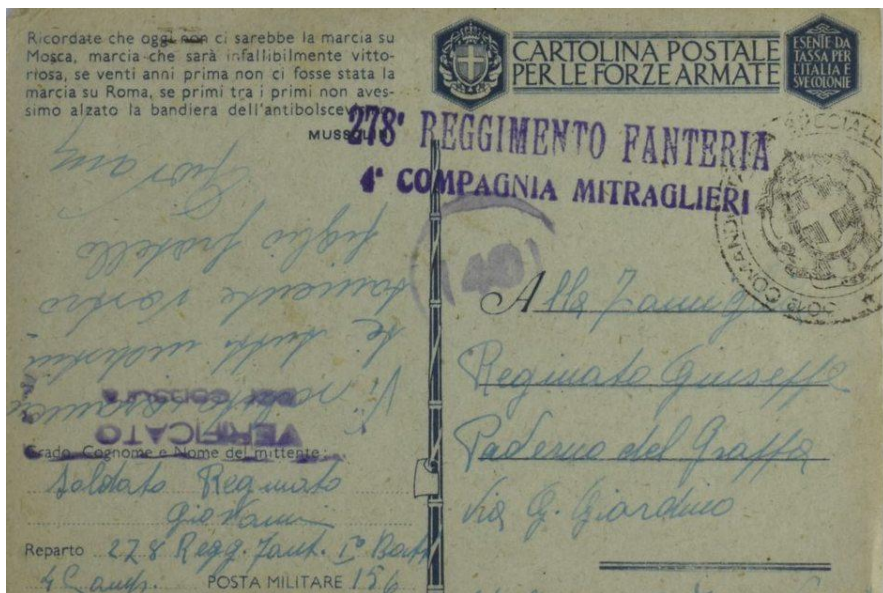 Ricordate che oggi non ci sarebbe la marcia su
Mosca, marcia che sarà infallibilmente vitto-
riosa, se venti anni prima non ci fosse stata la
marcia su Roma, se primi tra i primi non aves-
simo alzato la bandiera dell'antibolscevismo.
MUSSOLINI
CARTOLINA POSTALE
PER LE FORZE ARMATE
ESENTE DA
TASSA PER
L'ITALIA E
SUE COLONIE
278° REGGIMENTO FANTERIA
4ª COMPAGNIA MITRAGLIERI
49
Alla Famiglia
Reginato Giuseppe
Paderno del Grappa
Via G. Giardino
Vi
te tutti
vostro
figlio fratello
Giovanni
VERIFICATO
PER CENSURA
Grado, Cognome e Nome del mittente:
Soldato Reginato
Giovanni
Reparto 278 Regg. Fant. Iº Batt
4 Comp. POSTA MILITARE 156